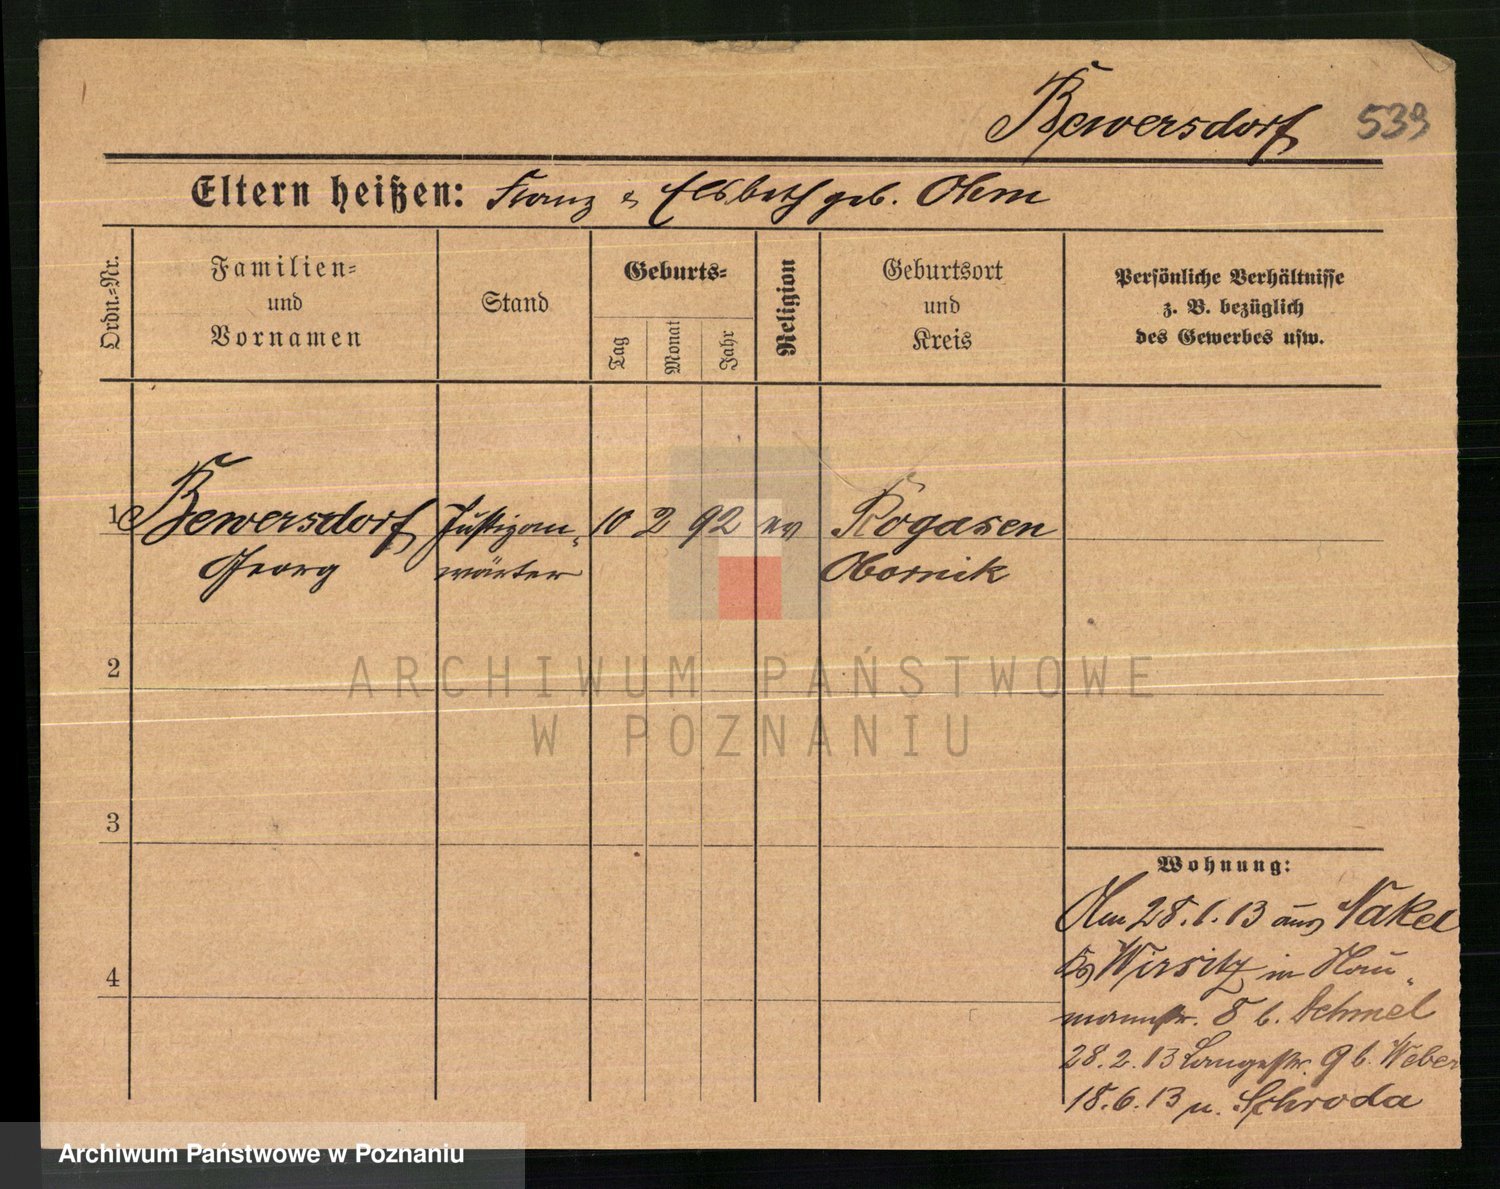 Bewersdorf 539
Eltern heißen: Franz & Elsbeth geb. Ohm
Ordn.-Nr.
Familien-
und
Vornamen
Stand
Geburts-
Tag
Monat
Jahr
Religion
Geburtsort
und
Kreis
Persönliche Verhältnisse
z. B. bezüglich
des Gewerbes usw.
1 Bewersdorf Justizan- 10 2 92 ev Rogasen
Georg wärter Obornik
2
ARCHIWUM PAŃSTWOWE
W POZNANIU
3
4
Wohnung:
28.1.13 aus Nakel
Wirsitz in Nau-
mannstr. 8 b. Schmel
28.2.13 Langestr. 9 b. Weber
18.6.13 n. Schroda
Archiwum Państwowe w Poznaniu